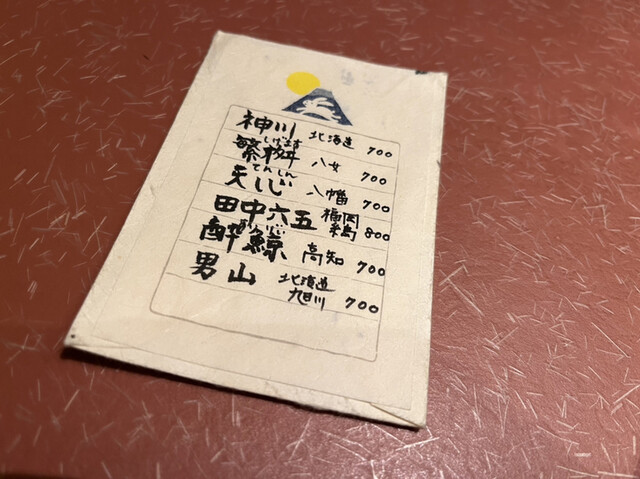 神川 北海道 700
しげます
繁桝 八女 700
てんしん
天心 八幡 700
田中六五 福岡 糸島 800
酔鯨 高知 700
男山 北海道 旭川 700